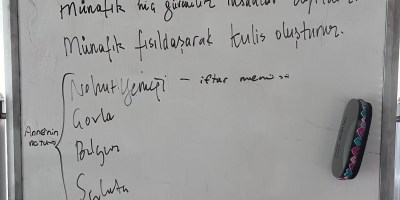 Münafık hiç güvenilir insanlar değildir.
Münafık fısıldaşarak kulis oluşturur.
Annenin notunu
Nohut Yemeği – iftar menüsü
Çorba
Bulgur
Salata